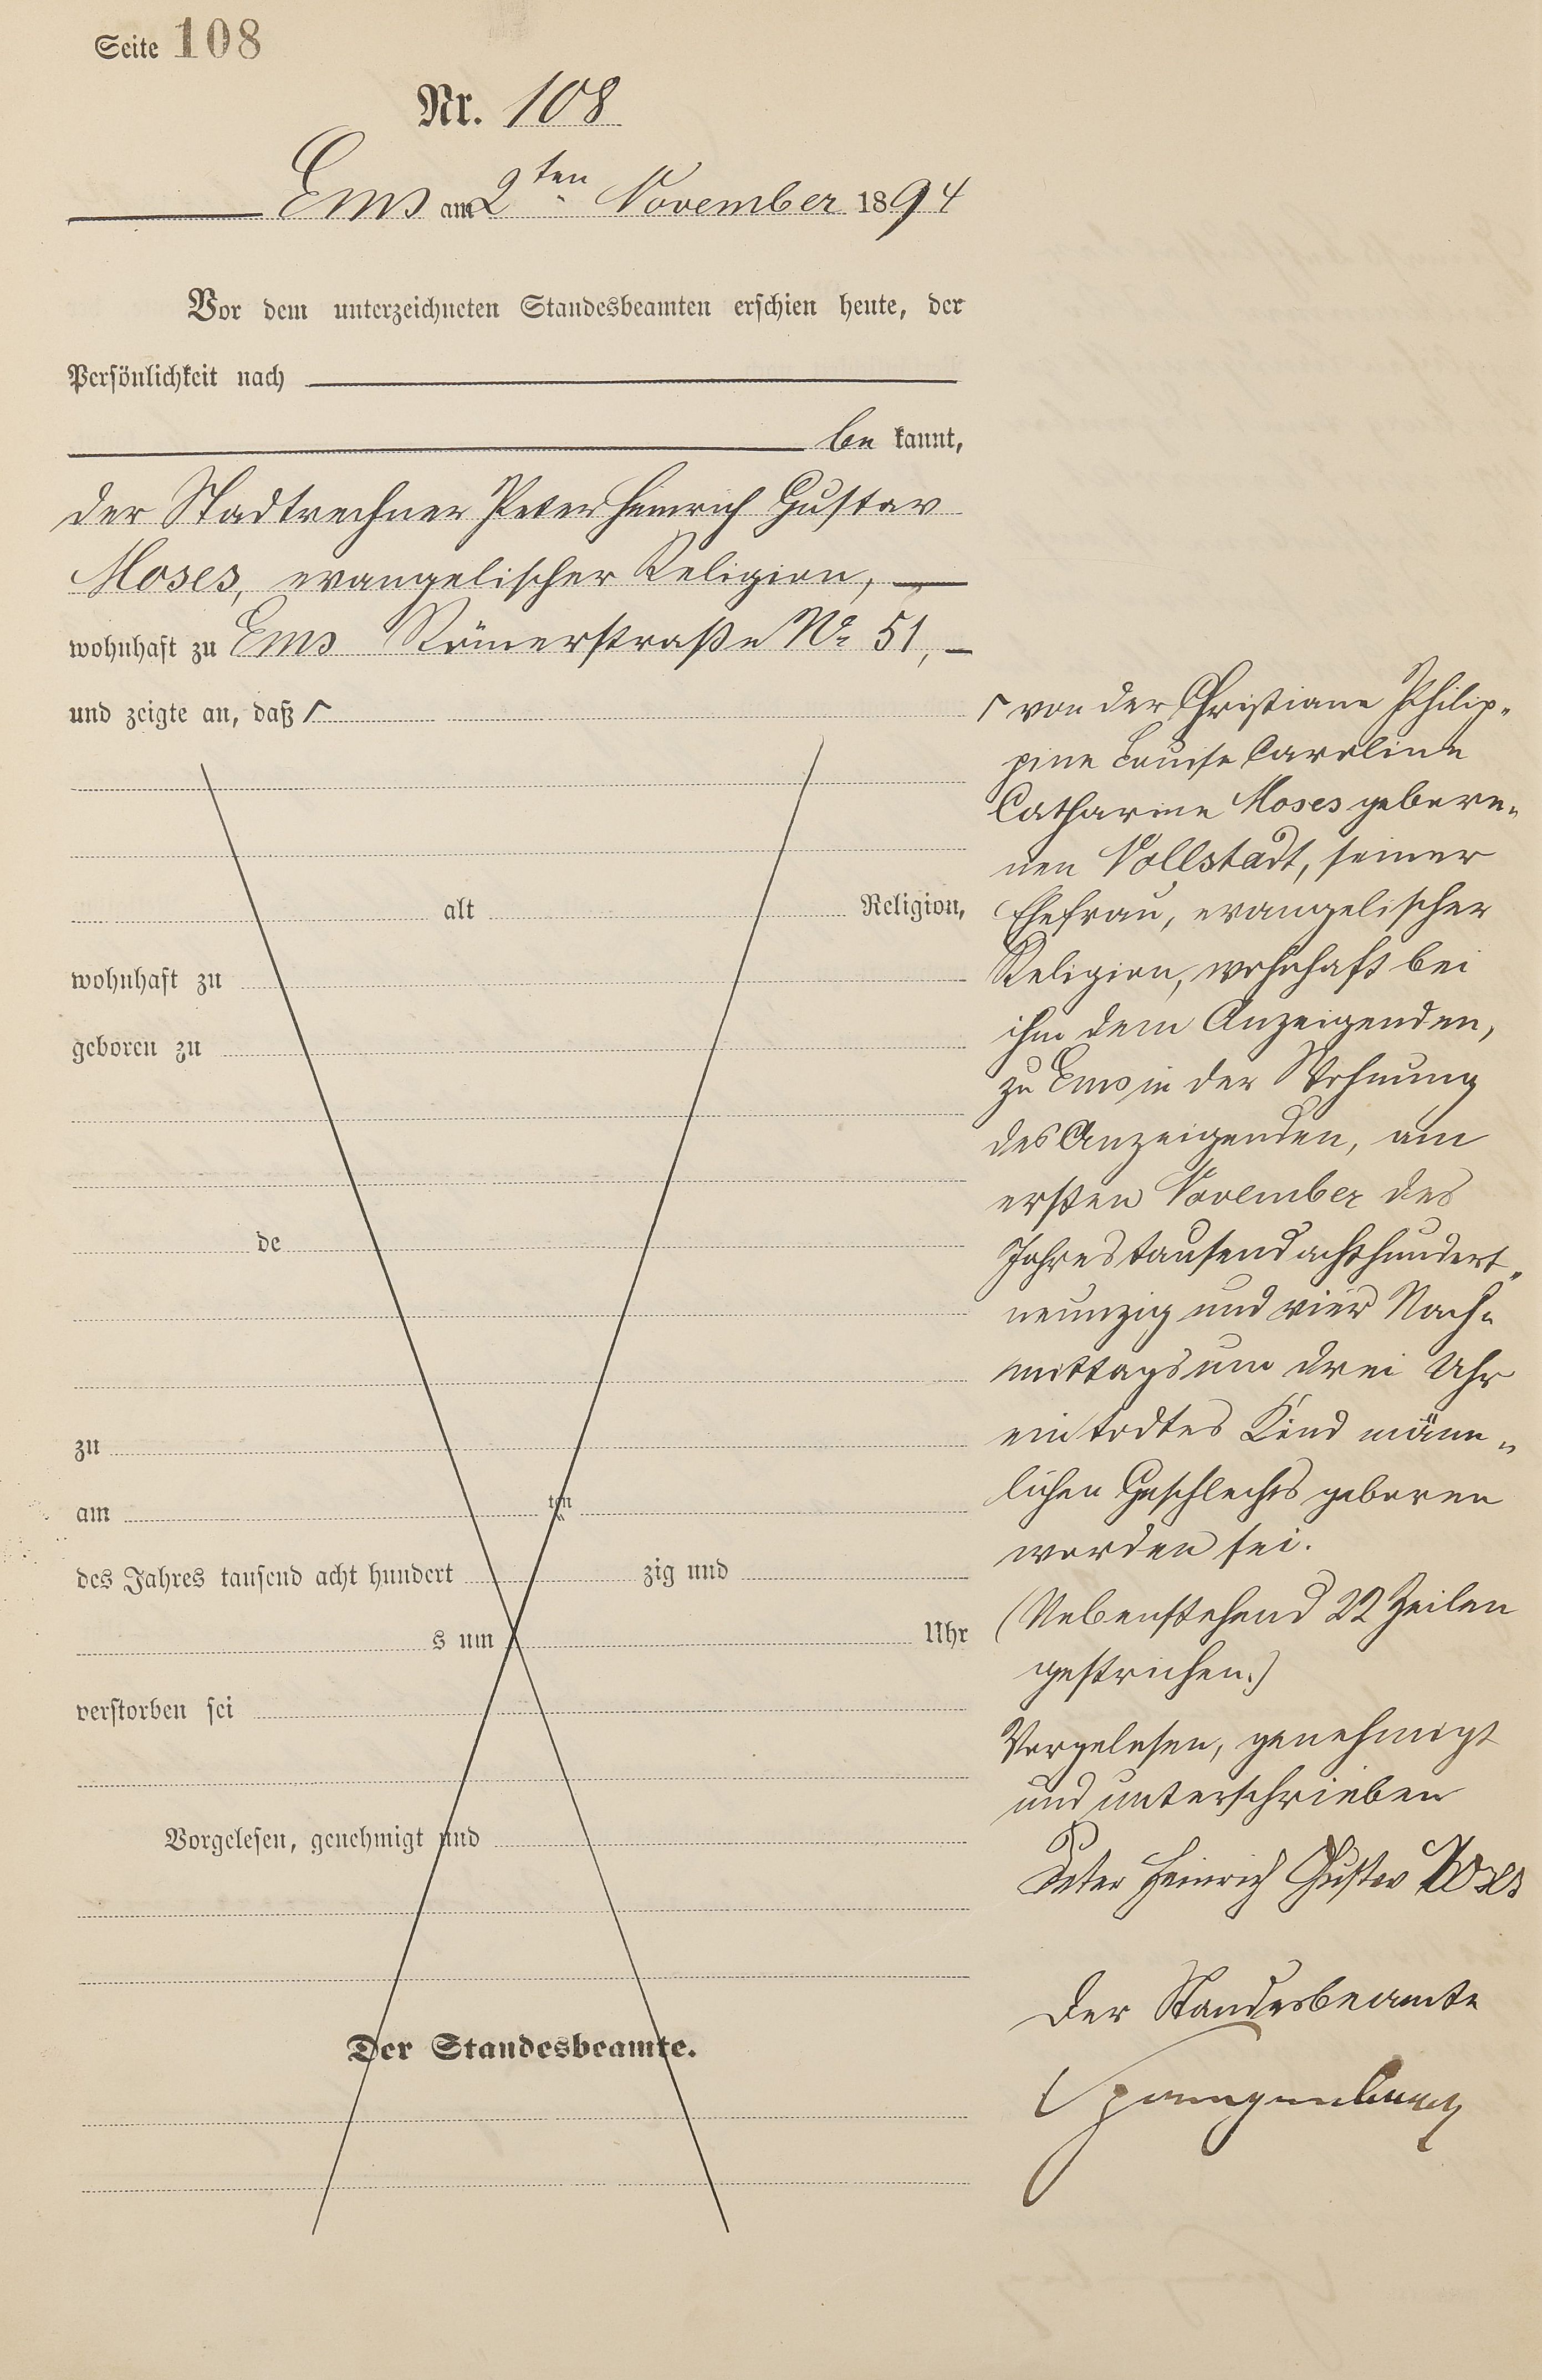 Seite 108
Nr. 108
Ems am 2ten November 1894
Vor dem unterzeichneten Standesbeamten erschien heute, der
Persönlichkeit nach
be kannt,
der Stadtrechner Peter Heinrich Gustav
Moses, evangelischer Religion,
wohnhaft zu Ems Römerstraße No 51,
und zeigte an, daß ┌
┌ von der Christiane Philip-
pine Louise Caroline
Catharine Moses gebore-
nen Vollstädt, seiner
Ehefrau, evangelischer
Religion, wohnhaft bei
ihm dem Anzeigenden,
zu Ems in der Wohnung
des Anzeigenden, am
ersten November des
Jahres tausend achthundert-
neunzig und vier Nach-
mittags um drei Uhr
ein todtes Kind männ-
lichen Geschlechts geboren
worden sei.
(Nebenstehend 22 Zeilen
gestrichen.)
Vorgelesen, genehmigt
und unterschrieben
Peter Heinrich Gustav Moses
Der Standesbeamte
Spangenberg
alt Religion,
wohnhaft zu
geboren zu
de
zu
am ten
des Jahres tausend acht hundert zig und
s um Uhr
verstorben sei
Vorgelesen, genehmigt und
Der Standesbeamte.